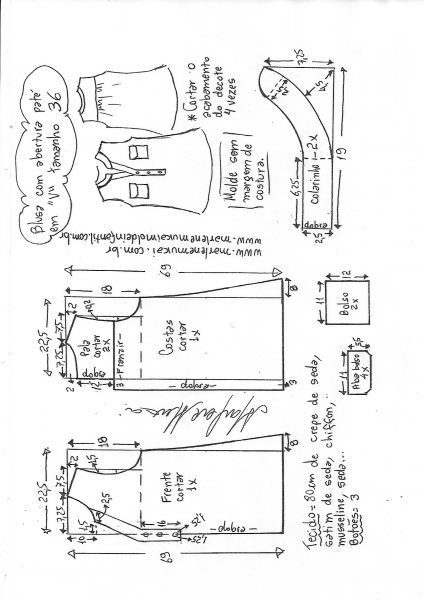 Blusa com abertura patê
em "V" tamanho 36
* Cortar o
acabamento
do decote
4 vezes
Molde sem
margem de
costura.
www.marlenemukaimoldeinfantil.com.br
www.marlenemukai.com.br
7,25
4,5
colarinho - 2x
19
6,25
dobra
25
69
18
22,5
7,5
7,25
2
Pala
cortar
2x
dobra
2
12
3
Franzir
Costas
cortar
1x
dobra
3
8
12
11
Bolso
2x
5,5
11
Aba bolso
4x
69
18
22,5
7,5
7,25
2
1,5
2,5
10
16
1,25
Frente
cortar
1x
dobra
8
Tecido = 80cm de crepe de seda,
satim de seda, chiffon,
musseline, seda...
Botões = 3